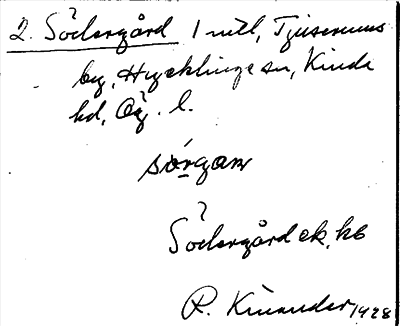 2. Södergård 1 mtl, Tjusemuns
by, Hycklinge sn, Kinda
hd, Ög. l.
sörgan
Södergård ek, kb
R. Kinander 1928